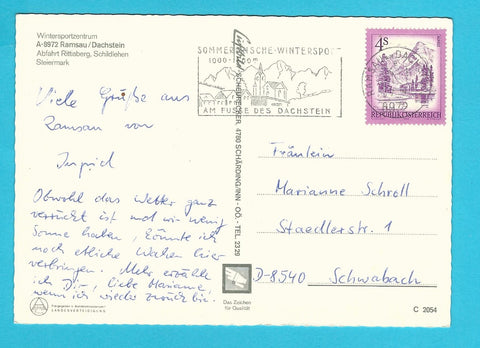 Wintersportzentrum
A-8972 Ramsau/Dachstein
Abfahrt Rittisberg, Schildlehen
Steiermark
Viele Grüße aus
Ramsau von
Ingrid
Obwohl das Wetter ganz
verrückt ist und wir wenig
Sonne haben, könnte ich
noch etliche Wochen hier
verbringen. Mehr erzähle
ich Dir, liebe Marianne,
wenn ich wieder zurück bin.
Freigegeben v. Bundesministerium f.
LANDESVERTEIDIGUNG
SCHÄRDING/INN - OÖ. - TEL. 2329
4780
SOMMERFRISCHE-WINTERSPORT
1000-
AM FUSSE DES DACHSTEIN
8972
4S
REPUBLIK ÖSTERREICH
Fräulein
Marianne Schroll
Staedlerstr. 1
D-8540 Schwabach
Das Zeichen
für Qualität
C 2054